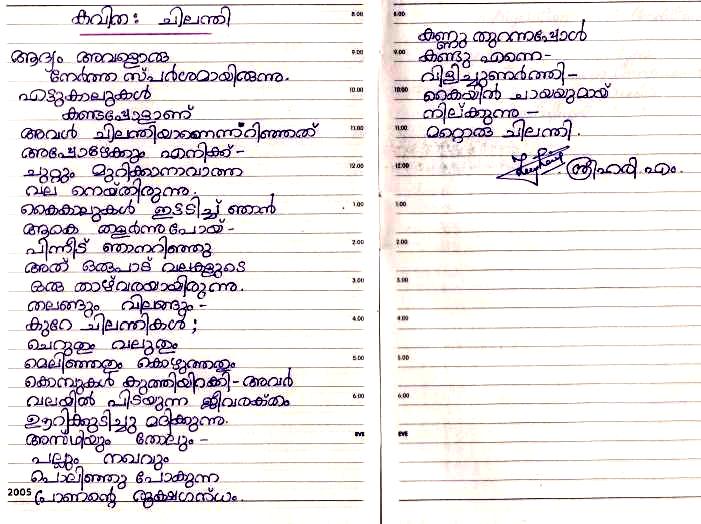 കവിത: ചിലന്തി
ആദ്യം അവളൊരു
നേർത്ത സ്പർശമായിരുന്നു.
എട്ടുകാലുകൾ
കണ്ടപ്പോളാണ്
അവൾ ചിലന്തിയാണെന്നറിഞ്ഞത്
അപ്പോഴേക്കും എനിക്ക്-
ചുറ്റും മുറിക്കാനാവാത്ത
വല നെയ്തിരുന്നു.
കൈകാലുകൾ ഇട്ടടിച്ച് ഞാൻ
ആകെ തളർന്നുപോയ്-
പിന്നീട് ഞാനറിഞ്ഞു
അത് ഒരുപാട് വലകളുടെ
ഒരു താഴ്‌വരയായിരുന്നു.
തലങ്ങും വിലങ്ങും-
കുറേ ചിലന്തികൾ;
ചെറുതും വലുതും
മെലിഞ്ഞതും കൊഴുത്തതും
കൊമ്പുകൾ കുത്തിയിറക്കി-അവർ
വലയിൽ പിടയുന്ന ജീവരക്തം
ഊറിക്കുടിച്ചു മദിക്കുന്നു.
അസ്ഥിയും തോലും-
പല്ലും നഖവും
പൊലിഞ്ഞു പോകുന്ന
പ്രാണന്റെ രൂക്ഷഗന്ധം.
2005
8.00
9.00
10.00
11.00
12.00
1.00
2.00
3.00
4.00
5.00
6.00
EVE
കണ്ണു തുറന്നപ്പോൾ
കണ്ടു എന്നെ-
വിളിച്ചുണർത്തി-
കൈയിൽ ചായയുമായ്
നില്ക്കുന്നു-
മറ്റൊരു ചിലന്തി.
ശ്രീഹരി എം.
8.00
9.00
10.00
11.00
12.00
1.00
2.00
3.00
4.00
5.00
6.00
EVE